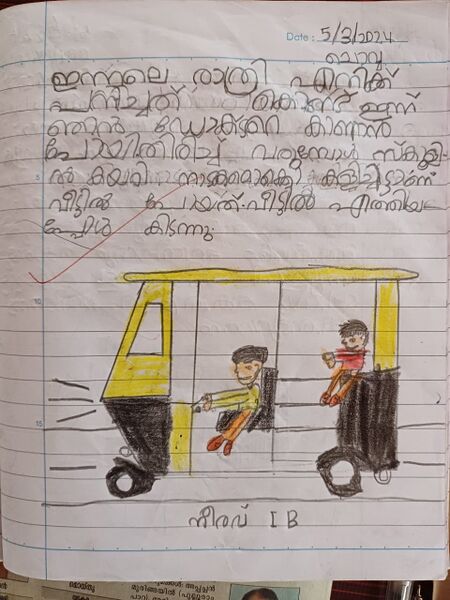 Date : 5/3/2024
ചൊവ്വ
ഇന്നലെ രാത്രി എനിക്ക്
പനിച്ചത് കൊണ്ട് ഇന്ന്
ഞാൻ ഡോക്ടറെ കാണാൻ
പോയി തിരിച്ച് വരുമ്പോൾ സ്കൂളി-
ൽ കയറി കളിച്ചിട്ടാണ്
വീട്ടിൽ പോയത്. വീട്ടിൽ എത്തിയ-
പ്പോൾ കിടന്നു.
നീരവ് I B